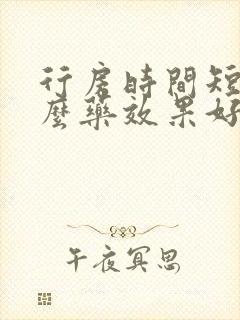 行房時間短
麼藥效果好
午夜冥思